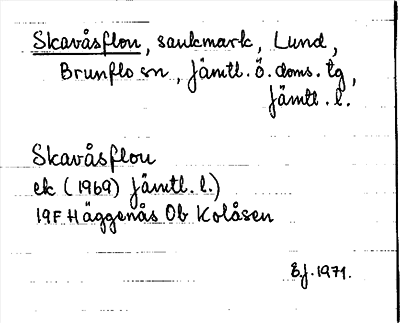 Skavåsflon, sankmark, Lund,
Brunflo sn, Jämtl. Ö. doms. tg,
Jämtl. l.
Skavåsflon
ek (1969) Jämtl. l.)
19F Häggenås Ob Kolåsen
EJ. 1971.